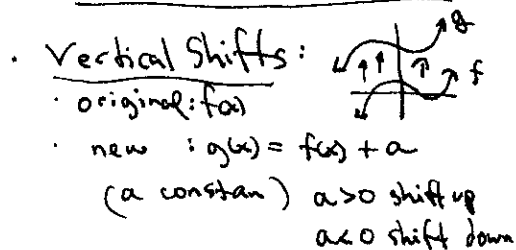 · Vertical Shifts:
g
f
· original: f(x)
· new : g(x) = f(x) + a
(a constan) a>0 shift up
a<0 shift down